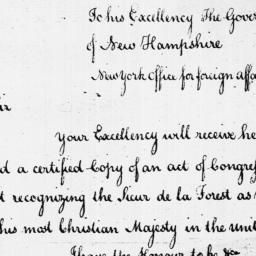 To his Excellency The Gover
of New Hampshire
New York Office for foreign affa
ir
your Excellency will receive he
d a certified Copy of an act of Congres
t recognizing the Sieur de la Forest as
his most Christian Majesty in the unit
I have the Honour to be &c